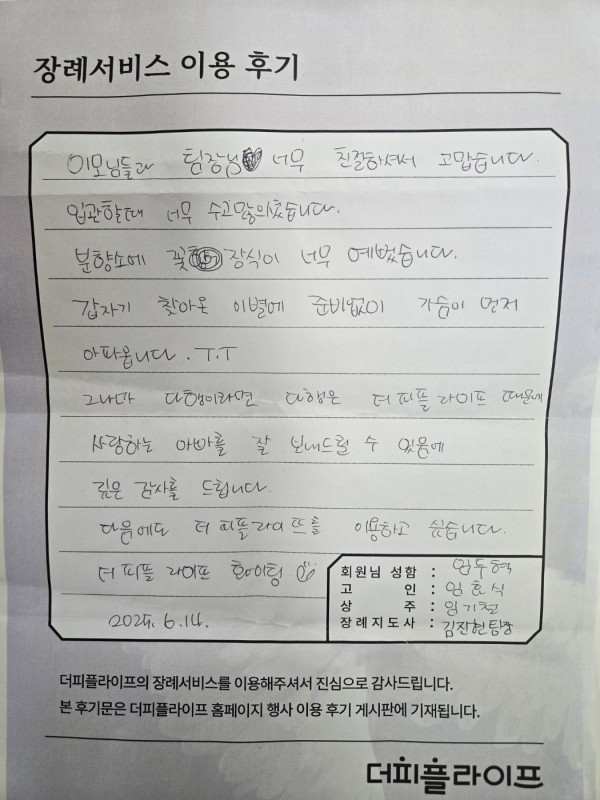 장례서비스 이용 후기
이모님들과 팀장님 너무 친절하셔서 고맙습니다.
입관할때 너무 수고많으셨습니다.
분향소에 꽃 장식이 너무 예뻤습니다.
갑자기 찾아온 이별에 준비없이 가슴이 먼저
아파옵니다. T.T
그나마 다행이라면 다행은 더피플라이프 때문에
사랑하는 아빠를 잘 보내드릴 수 있음에
깊은 감사를 드립니다.
다음에도 더피플라이프를 이용하고 싶습니다.
더피플라이프 화이팅
2025. 6.14.
회원님 성함 : 임두혁
고 인 : 임효식
상 주 : 임기철
장례지도사 : 김진현팀장
더피플라이프의 장례서비스를 이용해주셔서 진심으로 감사드립니다.
본 후기문은 더피플라이프 홈페이지 행사 이용 후기 게시판에 기재됩니다.
더피플라이프